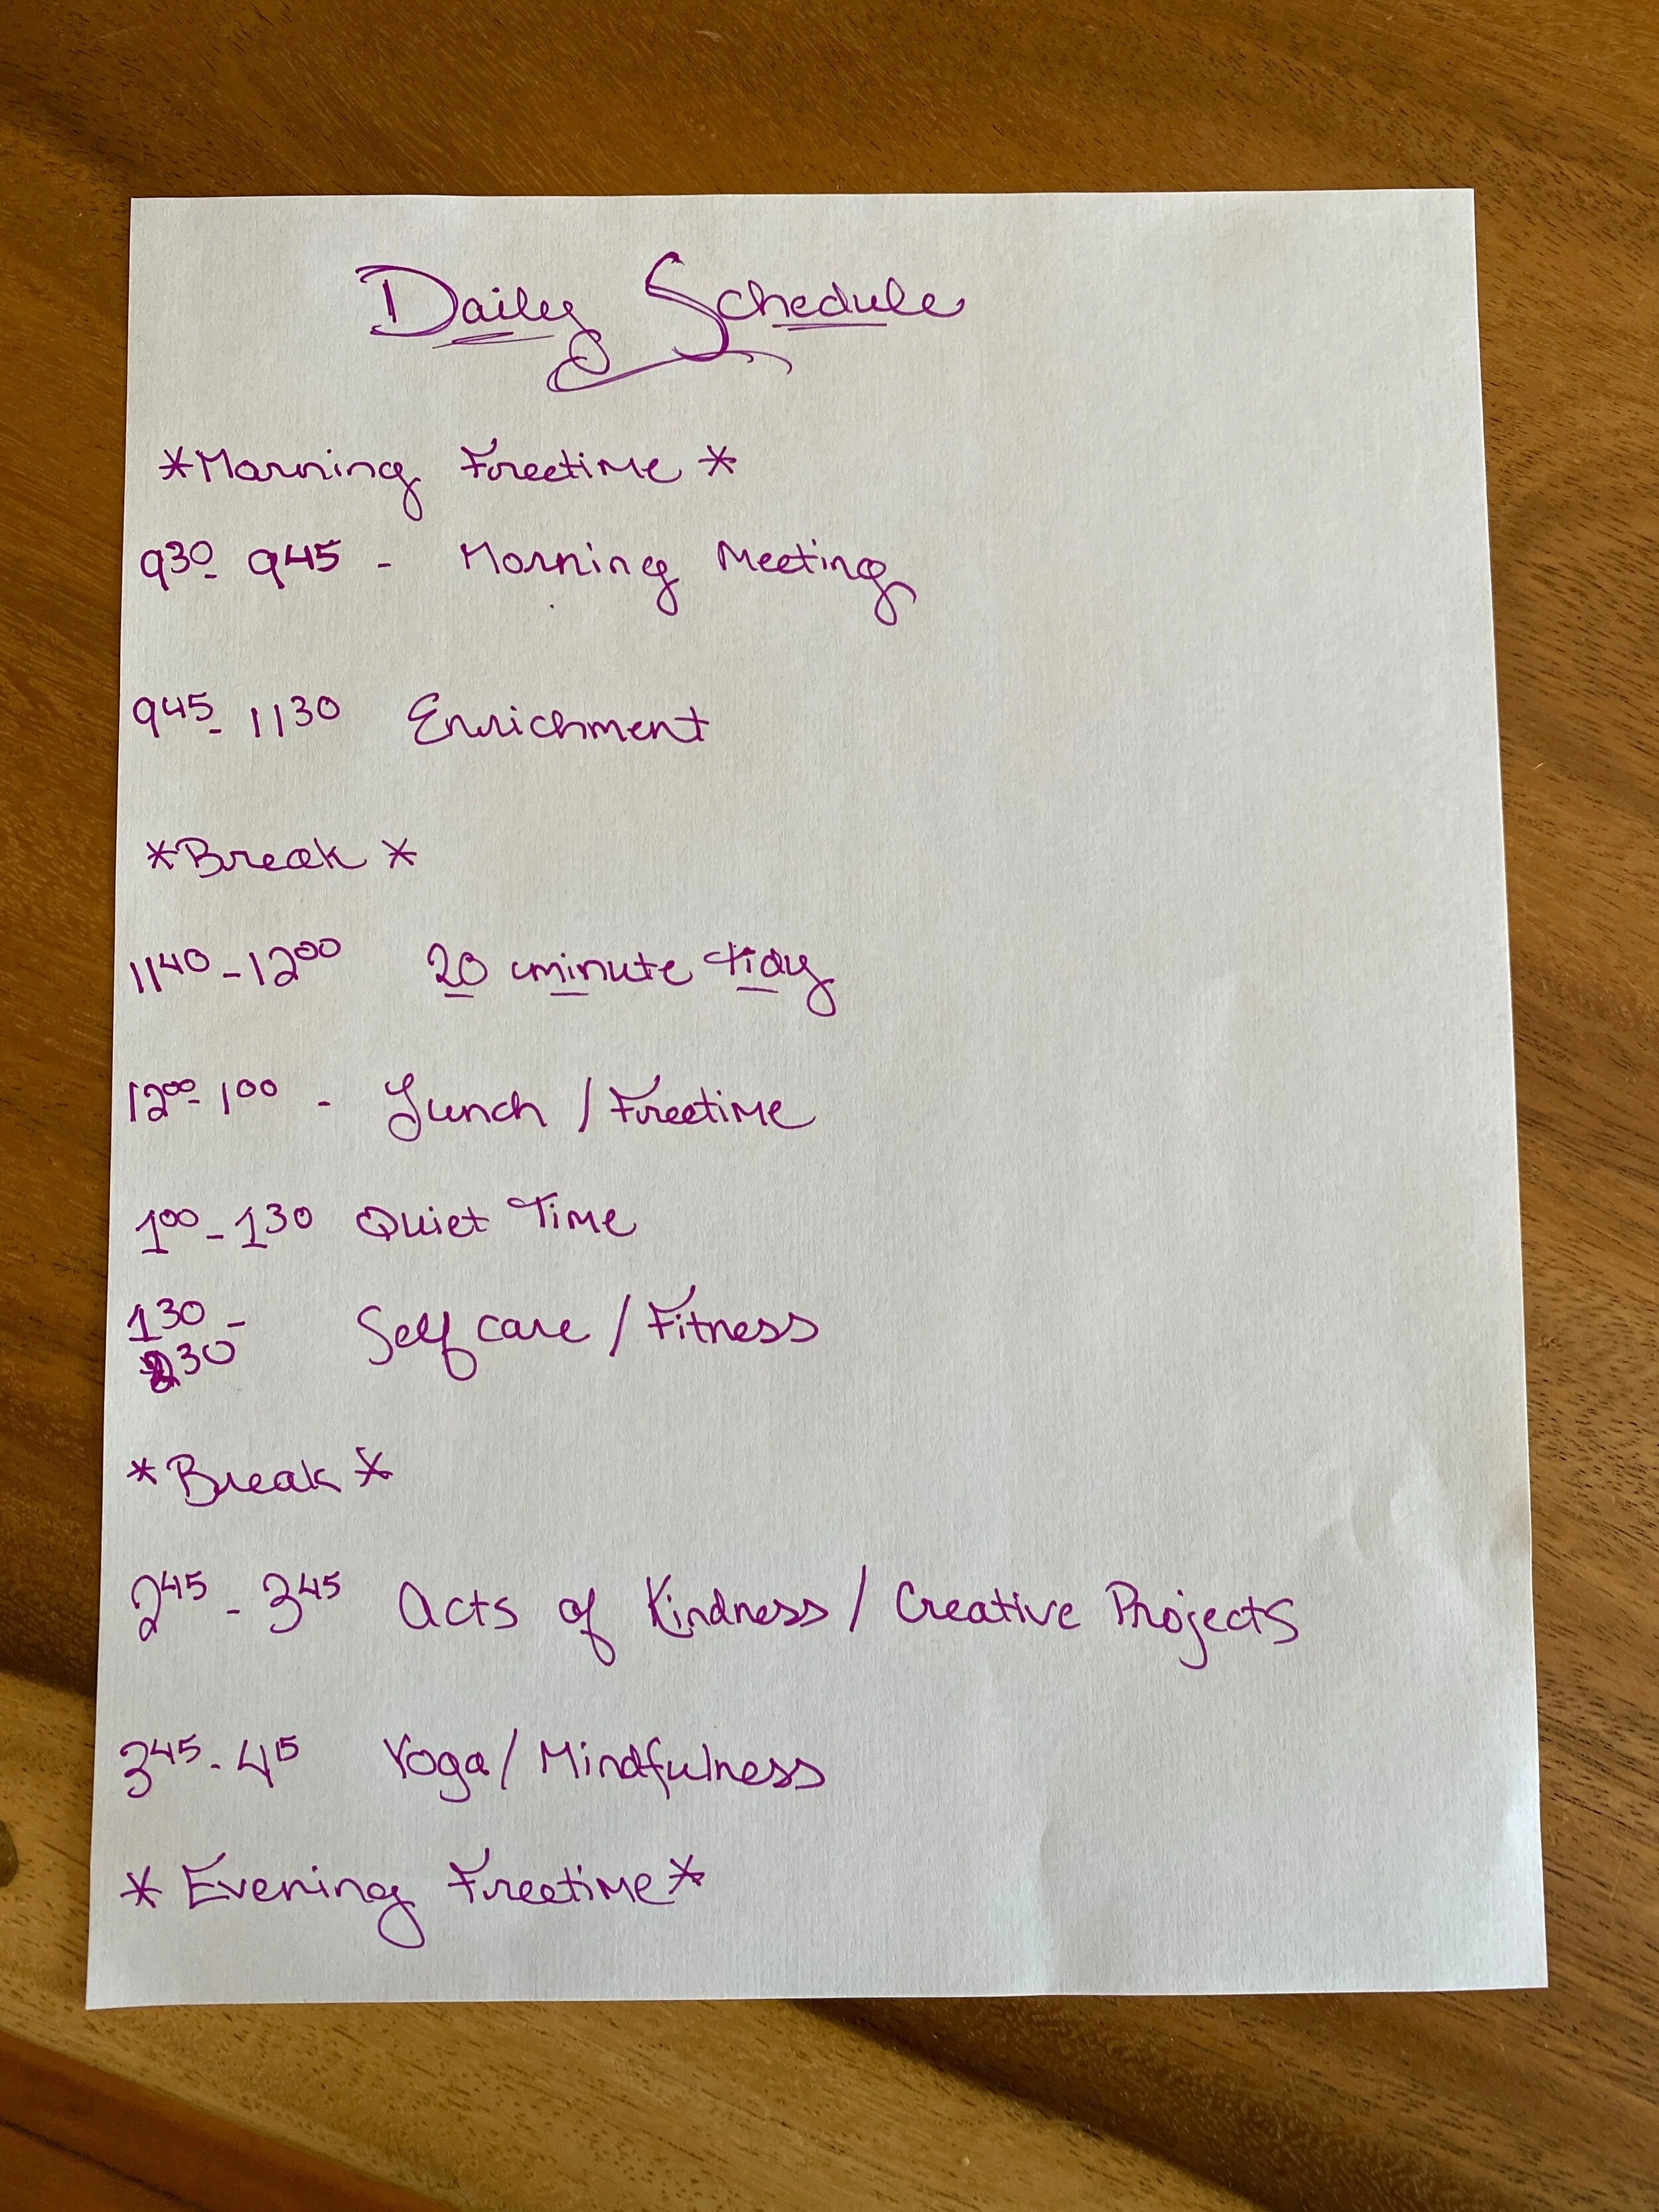 Daily Schedule
*Morning Freetime*
930- 945 - Morning Meeting
945- 1130 Enrichment
*Break*
1140-1200 20 minute tidy
1200-100 - Lunch / Freetime
100-130 Quiet Time
130-
230 Self care / Fitness
*Break*
245-345 Acts of Kindness / Creative Projects
345-415 Yoga / Mindfulness
*Evening Freetime*